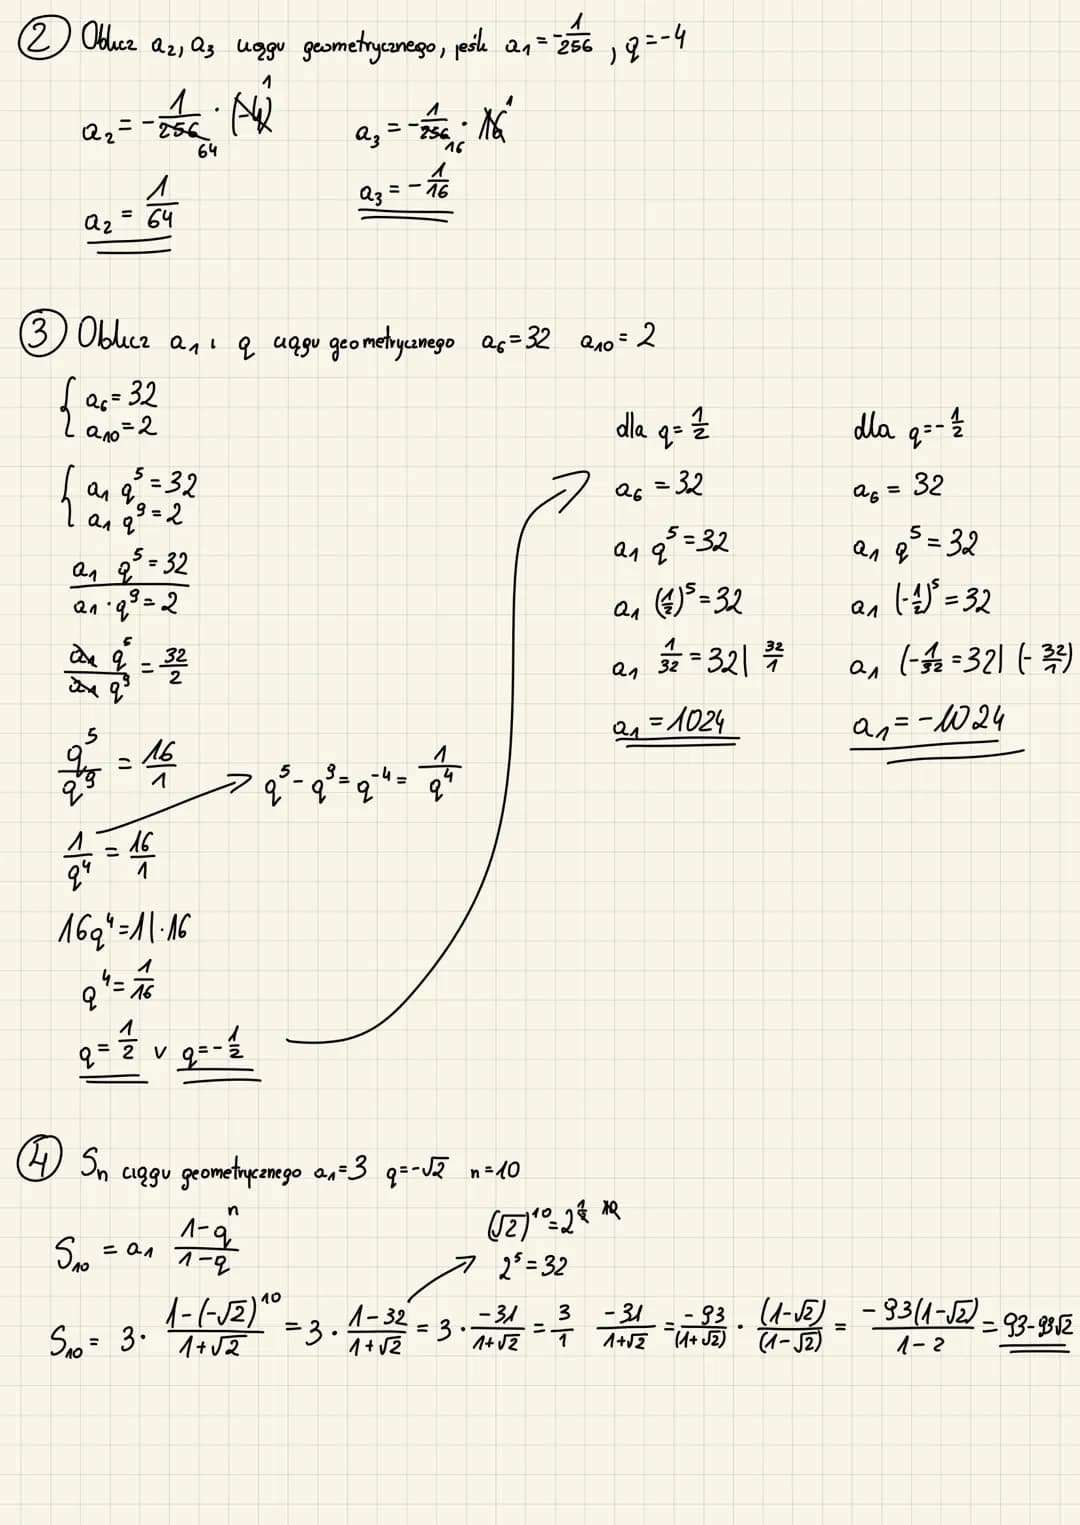 ② Oblicz a₂, a₃ ciągu geometrycznego, jeśli a₁ = -1/256 , q = -4
a₂ = -1/256 · (-4) 1 64
a₃ = -1/256 · 16 1 16
a₂ = 1/64
a₃ = -1/16
③ Oblicz a₁ i q ciągu geometrycznego a₆ = 32 a₁₀ = 2
{ a₆ = 32
a₁₀ = 2
{ a₁ q⁵ = 32
a₁ q⁹ = 2
a₁ q⁵ = 32
a₁ · q⁹ = 2
a₁ q⁵ / a₁ q⁹ = 32/2
q⁵/q⁹ = 16/1
q⁵ - q⁹ = q⁻⁴ = 1/q⁴
1/q⁴ = 16/1
16q⁴ = 1 | · 16
q⁴ = 1/16
q = 1/2 v q = -1/2
dla q = 1/2
a₆ = 32
a₁ q⁵ = 32
a₁ (1/2)⁵ = 32
a₁ 1/32 = 32 | 32/1
a₁ = 1024
dla q = -1/2
a₆ = 32
a₁ q⁵ = 32
a₁ (-1/2)⁵ = 32
a₁ (-1/32 = 32 | (-32/1)
a₁ = -1024
④ Sn ciągu geometrycznego a₁ = 3 q = -√2 n = 10
S₁₀ = a₁ 1-qⁿ / 1-q
(√2)¹⁰ = 2^(1/2) 10
2⁵ = 32
S₁₀ = 3 · 1-(-√2)¹⁰ / 1+√2 = 3 · 1-32 / 1+√2 = 3 · -31 / 1+√2 = 3/1 -31 / 1+√2 = -93 / (1+√2) · (1-√2) / (1-√2) = -93(1-√2) / 1-2 = 93-93√2